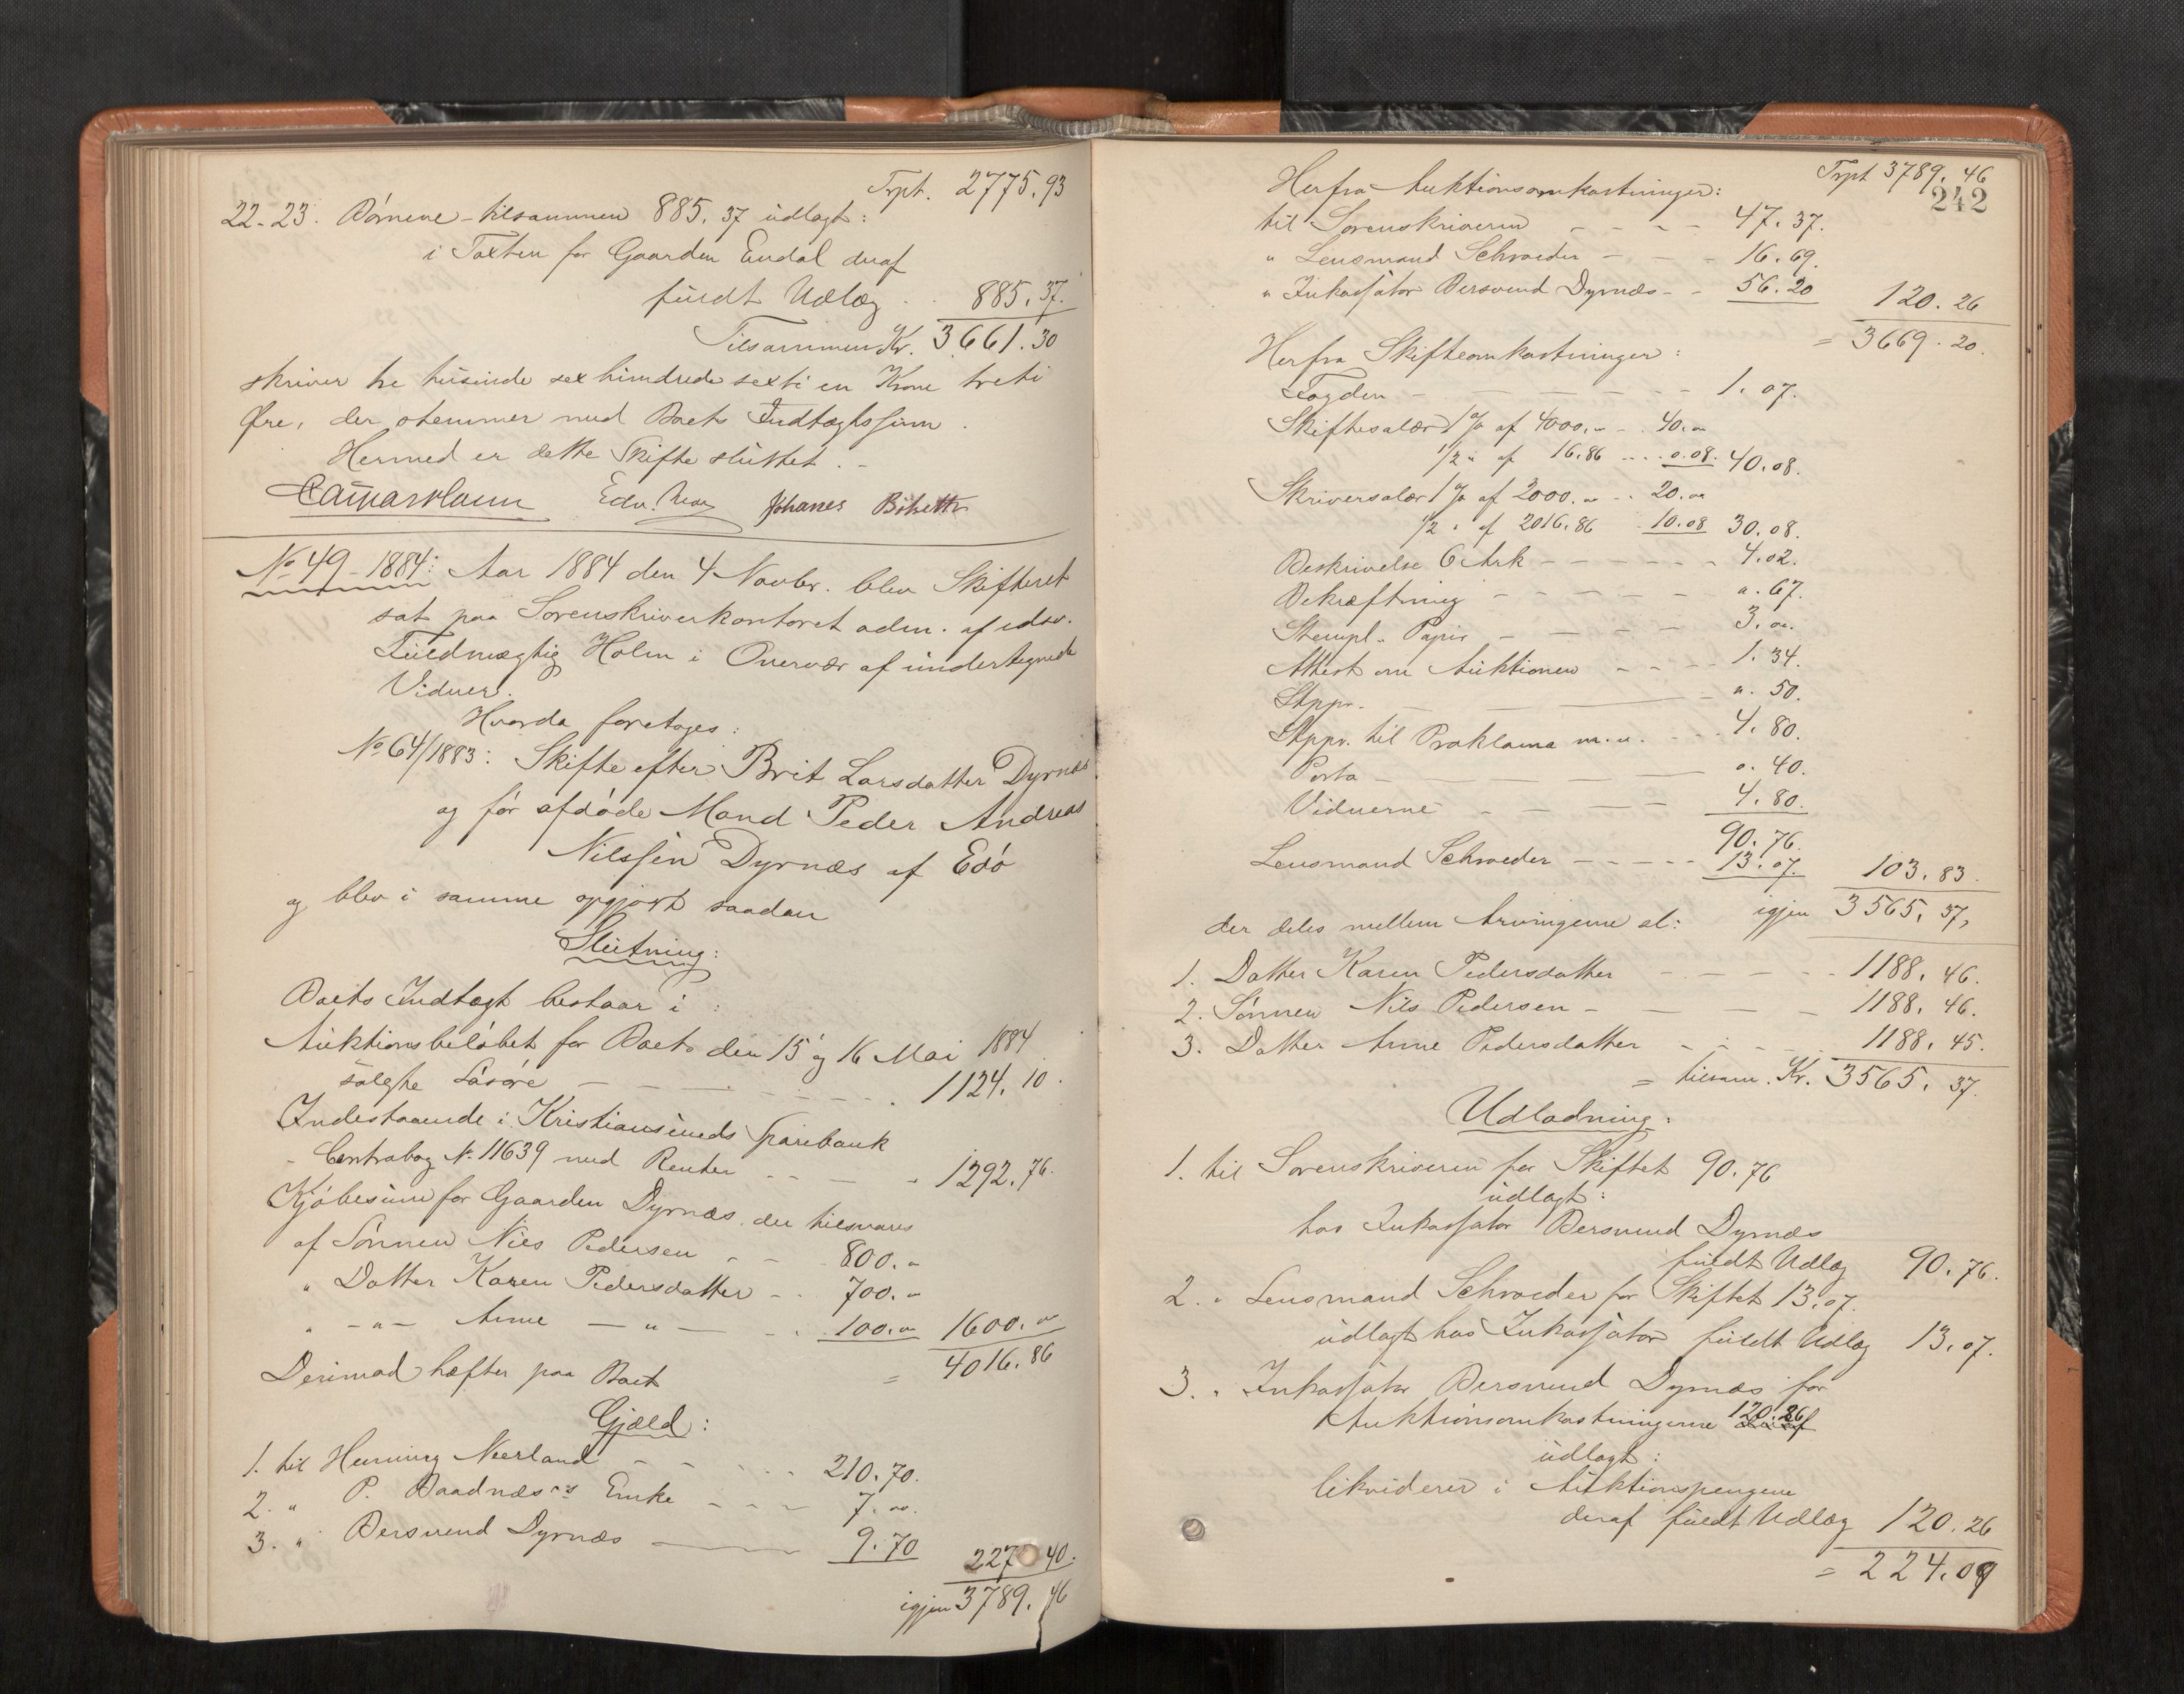 Trpt. 2775.93
22-23. Børnene tilsammen 885.37 udlagt:
i Taxten for Gaarden Eudal deraf
fuldt Udlæg 885.37.
Tilsammen Kr. 3661.30
skriver tre tusinde sex hundrede sexti en Krone treti
Øre, der stemmer med Boets Indtægtssum.
Hermed er dette Skifte sluttet. -
Edv. Johanes
No 49-1884: Aar 1884 den 4 Novbr. blev Skifteret
sat paa Sorenskriverkontoret adm. af edsv.
Fuldmægtig Holm i Overvær af undertegnede
Vidner.
Hvorda foretoges:
No 64/1883: Skifte efter Brit Larsdatter Dyrnæs
og før afdøde Mand Peder Andreas
Nilssen Dyrnæs af Edø
og blev i samme opgjort saadan
Slutning:
Boets Indtægt bestaar i:
Auktionsbeløbet for Boets den 15 og 16 Mai 1884
solgte Løsøre - - - - 1124.10.
Indestaaende i Kristiansunds Sparebank
- Contrabog N. 11639 med Renter - - - 1292.76.
Kjøbesum for Gaarden Dyrnæs, der tilsvares
af Sønnen Nils Pedersen - - 800.„
„ Datter Karen Pedersdatter - . 700.„
„ -„- Anne -„- . 100.„ 1600.„
= 4016.86
Derimod hæfter paa Boet
Gjæld:
1. til Henning Neerland - - - 210.70.
2. „ P. Baadnæs's Enke - - - 7.„
3. „ Bersvend Dyrnæs - 9.70 227.40.
igjen 3789.46
Trpt 3789.46
242
Herfra Auktionsomkostninger:
til Sorenskriveren - - - - 47.37.
„ Lensmand Schroeder - - - 16.69.
„ Inkassator Bersvend Dyrnæs - - 56.20 120.26
= 3669.20.
Herfra Skifteomkostninger:
Fogden - - - - - 1.07.
Skiftesalær 1 % af 4000.„ - . 40.„
1/2 „ af 16.86 .... 0.08. 40.08.
Skriversalær 1 % af 2000.„ - . 20.„
1/2 „ af 2016.86 10.08 30.08.
Beskrivelse 6 Ark - - - - - 4.02.
Bekræftning - - - - - „.67.
Stempl. Papir - - - - 3.„.
Attest om Auktionen - - - - 1.34.
Stppr. - - - „.50.
Stppr. til Proklama m.v. - - - 4.80.
Porto - - - 0.40.
Vidnerne - - - - 4.80.
90.76.
Lensmand Schroeder - - - - - 13.07. 103.83.
igjen 3565.37,
der deles mellem Arvingerne al:
1. Datter Karen Pedersdatter - - - - 1188.46.
2. Sønnen Nils Pedersen - - - - 1188.46.
3. Datter Anne Pedersdatter - - - 1188.45.
= tilsam. Kr. 3565.37.
Udlodning:
1. til Sorenskriveren for Skiftet 90.76
udlagt:
hos Inkassator Bersvend Dyrnæs
fuldt Udlæg 90.76.
2. „ Lensmand Schroeder for Skiftet 13.07.
udlagt hos Inkassator fuldt Udlæg 13.07.
3. „ Inkassator Bersvend Dyrnæs for
Auktionsomkostningerne 120.26
udlagt:
likviderer i Auktionspengene
deraf fuldt Udlæg 120.26
= 224.09